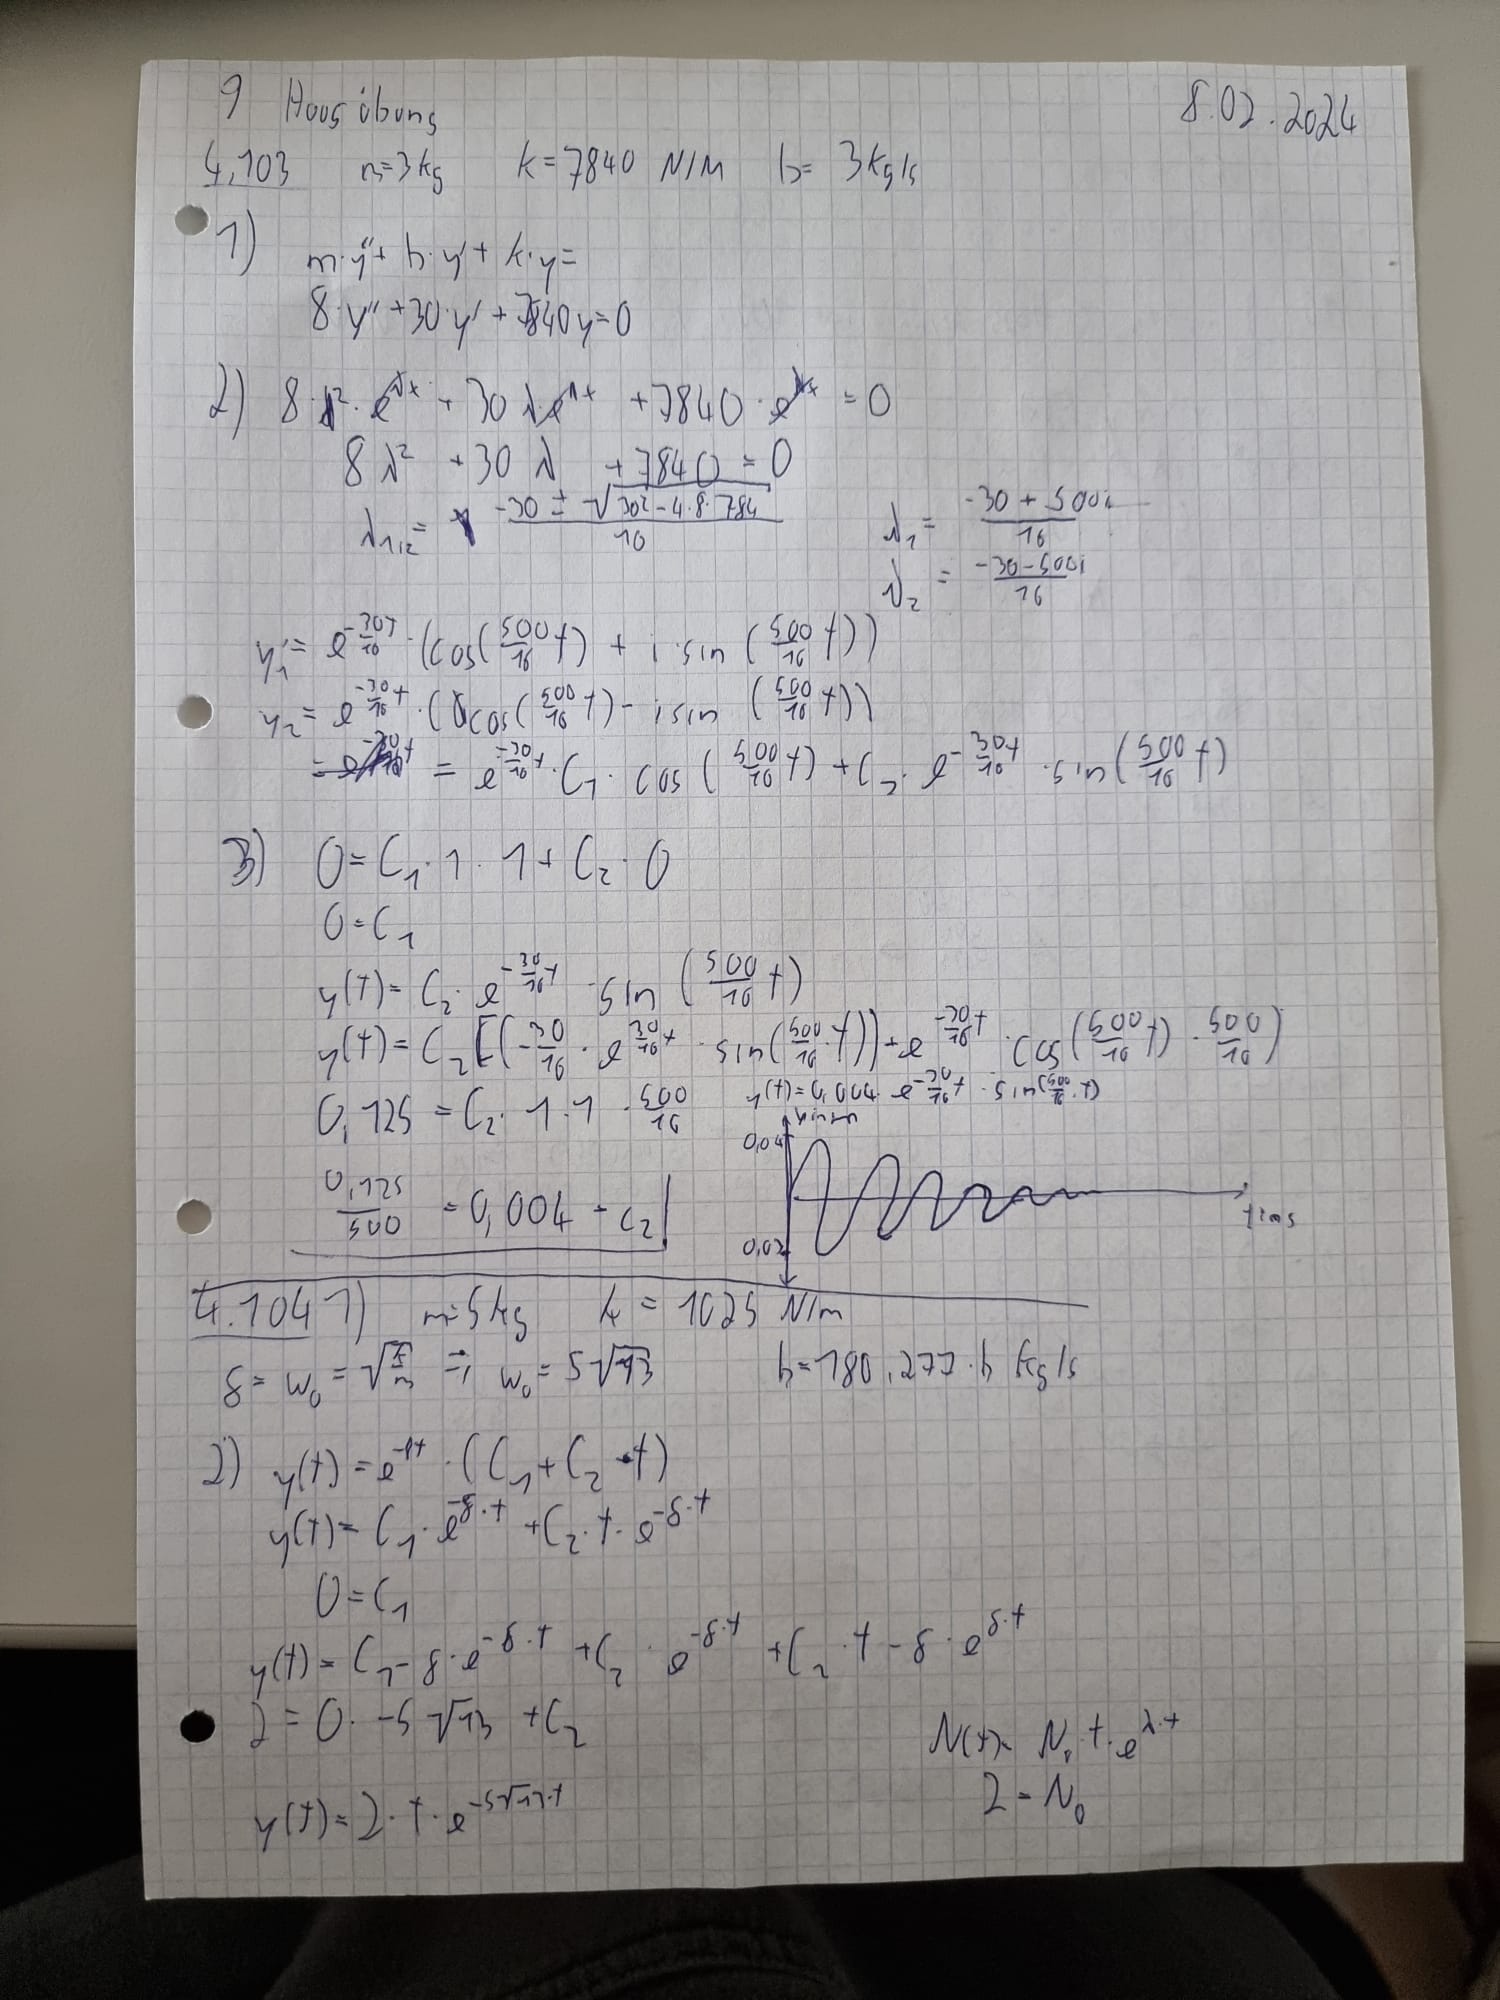 9 Hausübung 8.02.2024
4.103 m=3kg k=7840 N/M b= 3kg/s
1) m·y''+ b·y'+ k·y=
8·y''+30·y'+7840y=0
2) 8·λ²·e^λt + 30 λ·e^λt +7840·e^λt = 0
8λ² +30 λ +7840 = 0
λ1,2= -30 ± √(302-4·8·784) / 16 λ1= (-30+500i)/16
λ2 = (-30-500i)/16
y1= e^(-30/16 t)·(cos(500/16 t) + i·sin(500/16 t))
y2= e^(-30/16 t)·(cos(500/16 t) - i sin(500/16 t))
= e^(-30/16 t)·C1·cos(500/16 t) + C2·e^(-30/16 t)·sin(500/16 t)
3) 0=C1·1·1+C2·0
0=C1
y(t)= C2·e^(-30/16 t)·sin(500/16 t)
y(t)= C2[(-30/16·e^(-30/16 t)·sin(500/16·t))+e^(-30/16 t)·cos(500/16 t)·500/16)
0,125 =C2·1·1·500/16 y(t)=0,004·e^(-30/16 t)·sin(500/16·t)
0,04
0,125/500 =0,004 = C2
t in s
0,02
4.104 1) m=5kg k = 1025 N/m
δ= w0 = √(k/m) => w0= 5√13 b=180,277·b kg/s
2) y(t)=e^(-δt)·(C1+C2·t)
y(t)= C1·e^(-δ·t) +C2·t·e^(-δ·t)
0=C1
y(t)= C1-δ·e^(-δ·t) +C2·e^(-δ·t) +C2·t-δ·e^(δ·t)
2=0·-5√13 +C2 N(t)= N0·t·e^(λ·t)
2=N0
y(t)=2·t·e^(-5√13·t)